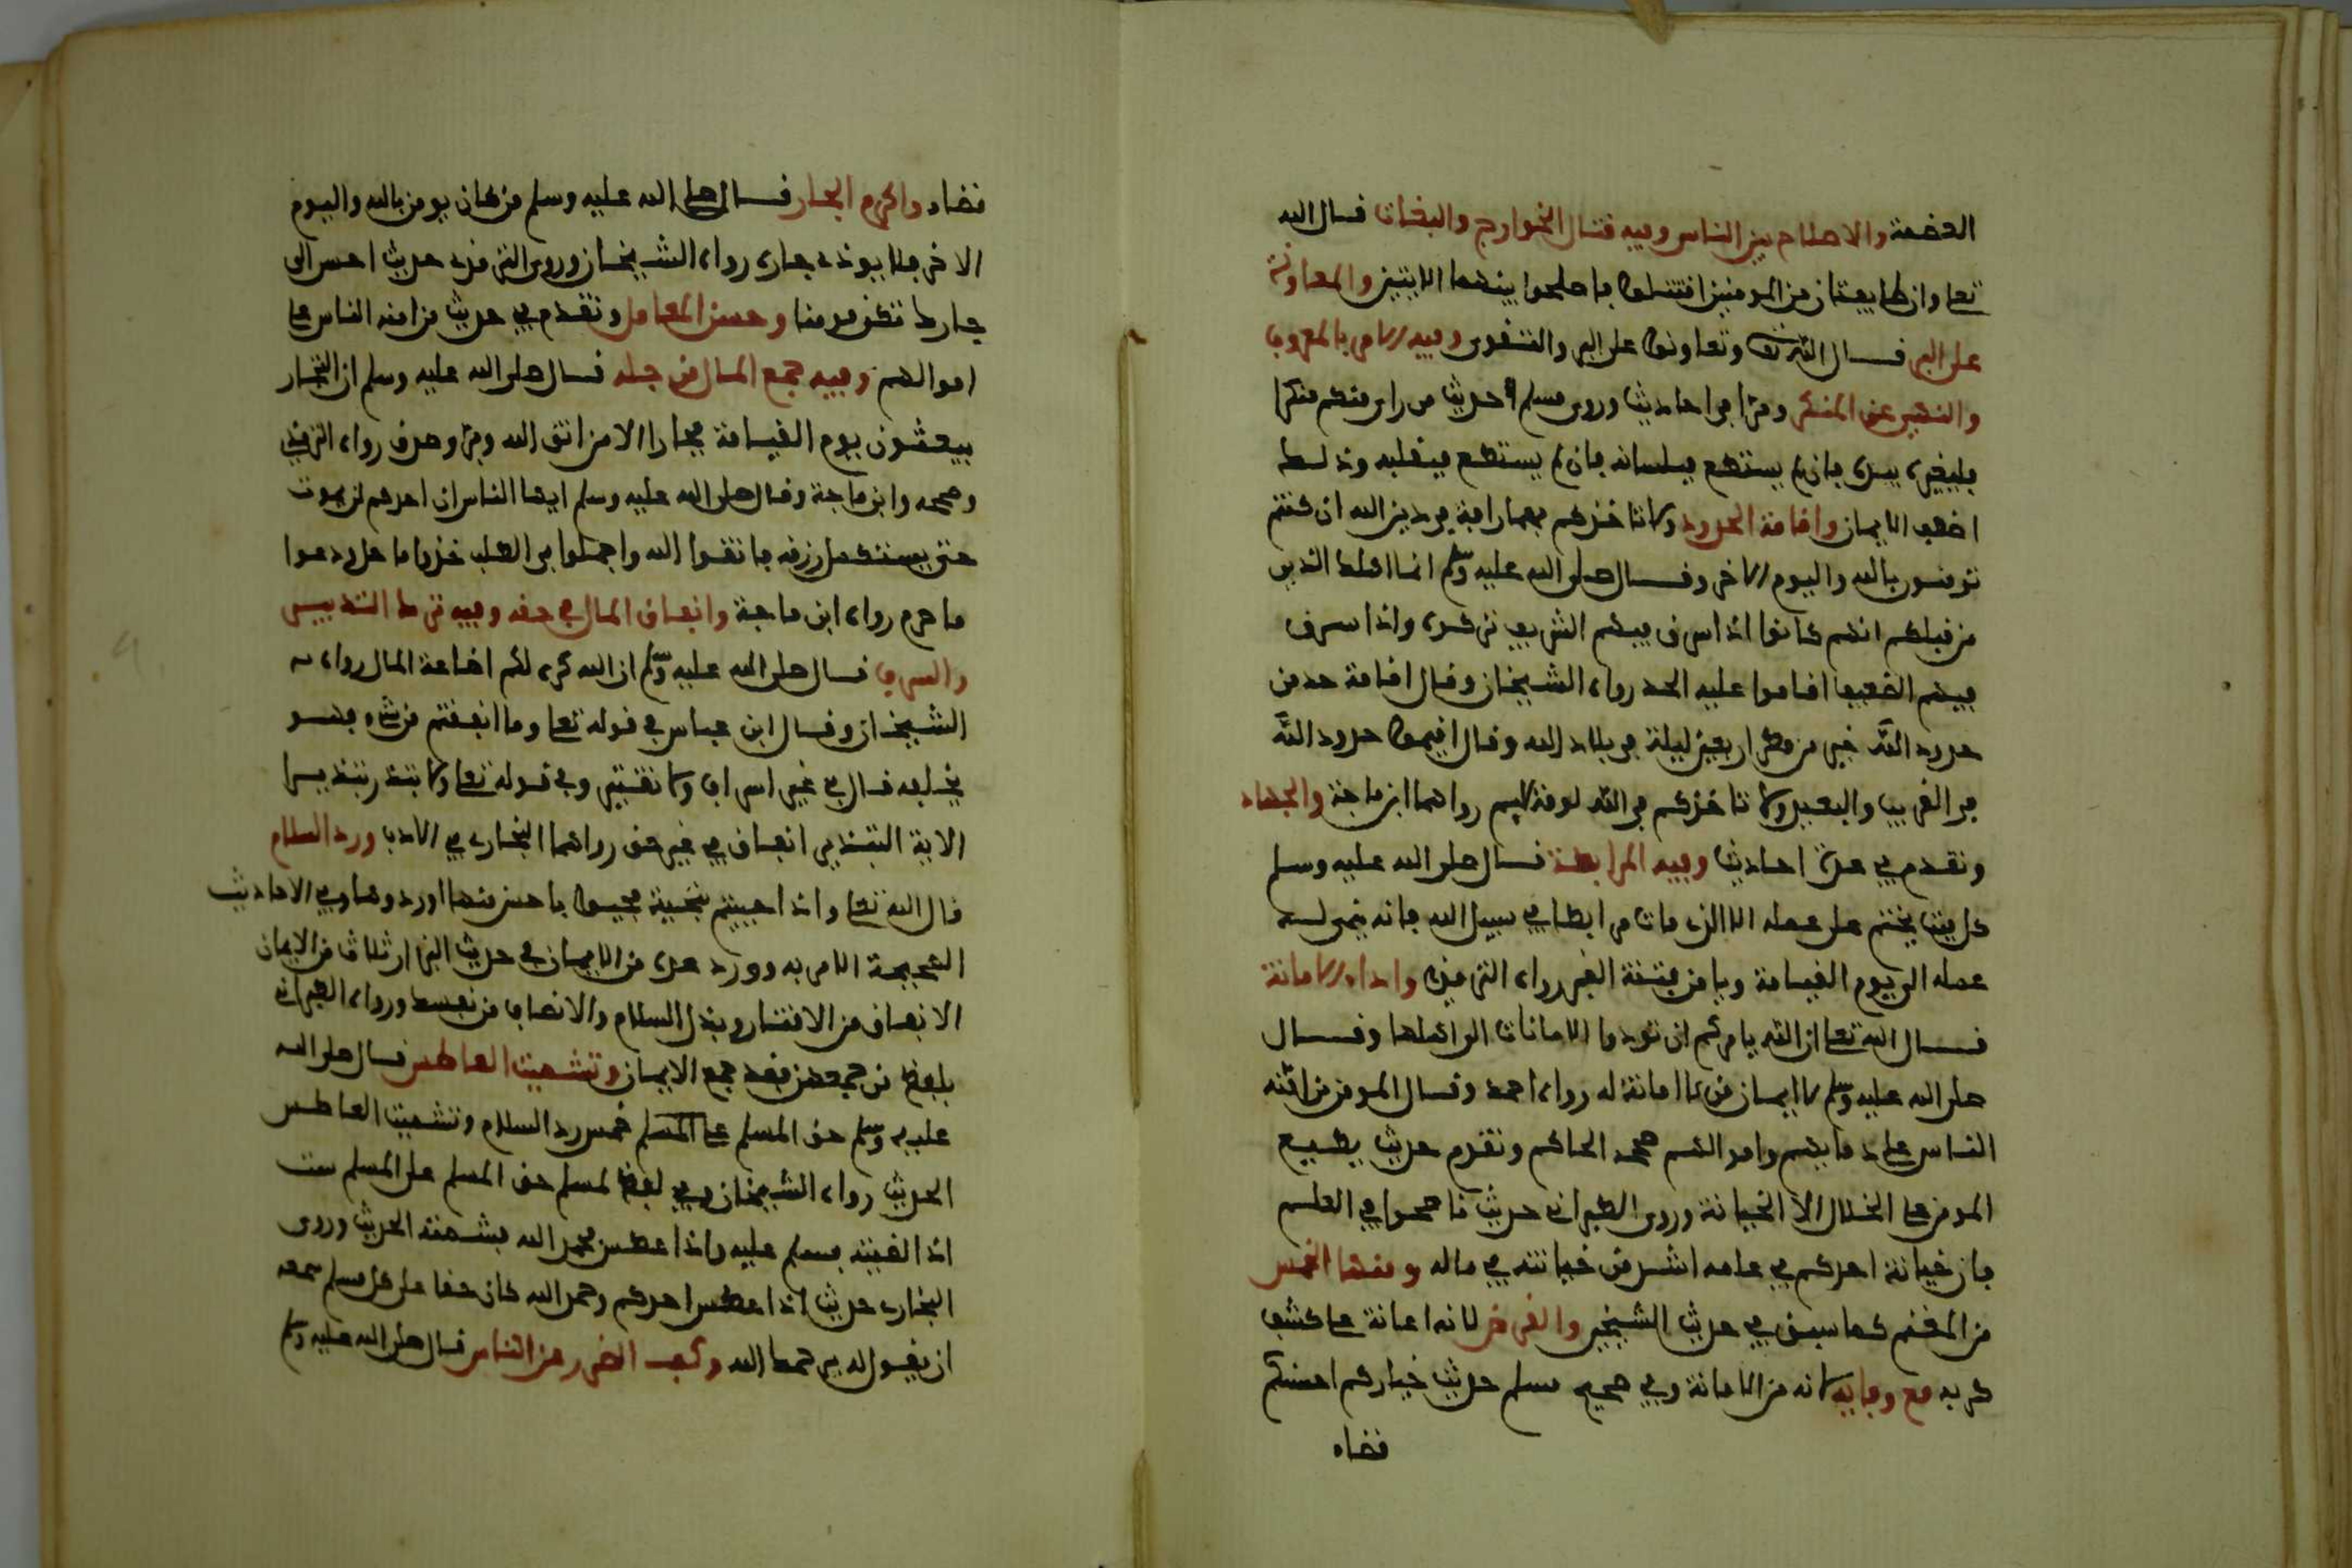 العصمة والاصلاح بين الناس وفيه قتال الخوارج والبغات قال الله
تعا وان طايفتان من المومنين اقتتلوا فاصلحوا بينهما الايتين والمعاونة
على البر قال الله تعا وتعاونوا على البر والتقوى وفيه الامر بالمعروف
والنهي عن المنكر ومرا في احاديث وروى مسلم حديث من راى منكم منكرا
فليغيره بيده فان لم يستطع فبلسانه فان لم يستطع فبقلبه وذلك
اضعف الايمان واقامة الحدود ولا تاخذكم بهما رافة في دين الله ان كنتم
تومنون بالله واليوم الاخر وقال صلى الله عليه وسلم انما اهلك الذين
من قبلكم انهم كانوا اذا سرق فيهم الشريف تركوه واذا سرق
فيهم الضعيف اقاموا عليه الحد رواه الشيخان وقال اقامة حد من
حدود الله خير من مطر اربعين ليلة في بلاد الله وقال اقيموا حدود الله
في القريب والبعيد ولا تاخذكم في الله لومة لايم رواهما ابن ماجة والجهاد
وتقدم في عدة احاديث وفيه المرابطة قال صلى الله عليه وسلم
كل ميت يختم على عمله الا الذي مات مرابطا في سبيل الله فانه ينمى له
عمله الى يوم القيامة ويامن فتنة القبر رواه الترمذي واداء الامانة
قال الله تعا ان الله يامركم ان تودوا الامانات الى اهلها وقال
صلى الله عليه وسلم لا ايمان لمن لا امانة له رواه احمد وقال المومن من امنه
الناس على دمايهم واموالهم صححه الحاكم وتقدم حديث يطبع
المومن على الخلال الا الخيانة وروى الطبراني حديث تناصحوا في العلم
فان خيانة احدكم في علمه اشد من خيانته في ماله ومنها الخمس
من المغنم كما سبق في حديث الشيخين والقرض لانه اعانة على كشف
كربه مع وفايه لانه من الامانة وفي صحيح مسلم حديث خياركم احسنكم
قضاء
قضاء واكرم الجار قال صلى الله عليه وسلم من كان يومن بالله واليوم
الاخر فلا يوذي جاره رواه الشيخان وروى الترمذي حديث احسن الى
جارك تكن مومنا وحسن المعامل وتقدم في حديث من امنه الناس على
اموالهم وفيه جمع المال من حله قال صلى الله عليه وسلم ان التجار
يبعثون يوم القيامة فجارا الا من اتقى الله وبر وصدق رواه الترمذي
وصححه وابن ماجة وقال صلى الله عليه وسلم ايها الناس ان احدكم لن يموت
حتى يستكمل رزقه فاتقوا الله واجملوا في الطلب خذوا ما حل ودعوا
ما حرم رواه ابن ماجة وانفاق المال في حقه وفيه ترك التبذير
والسرف قال صلى الله عليه وسلم ان الله كره لكم اضاعة المال رواه
الشيخان وقال ابن عباس في قوله تعا وما انفقتم من شيء فهو
يخلفه قال في غير اسراف ولا تقتير وفي قوله تعا ولا تبذر تبذيرا
الاية التبذير انفاق في غير حق رواهما البخاري في الادب ورد السلام
قال الله تعا واذا حييتم بتحية فحيوا باحسن منها او ردوها وفي الاحاديث
الصحيحة الامر به وورد عده من الايمان في حديث البزار ثلاث من الايمان
الانفاق من الاقتار وبذل السلام والانصاف من نفسك ورواه الطبراني
بلفظ من جمعهن فقد جمع الايمان وتشميت العاطس قال صلى الله
عليه وسلم حق المسلم على المسلم خمس رد السلام وتشميت العاطس
الحديث رواه الشيخان وفي لفظ لمسلم حق المسلم على المسلم ست
اذا لقيته فسلم عليه واذا عطس فحمد الله فشمته الحديث وروى
البخاري حديث اذا عطس احدكم وحمد الله كان حقا على كل مسلم سمعه
ان يقول له يرحمك الله وكف الضرر عن الناس قال صلى الله عليه وسلم